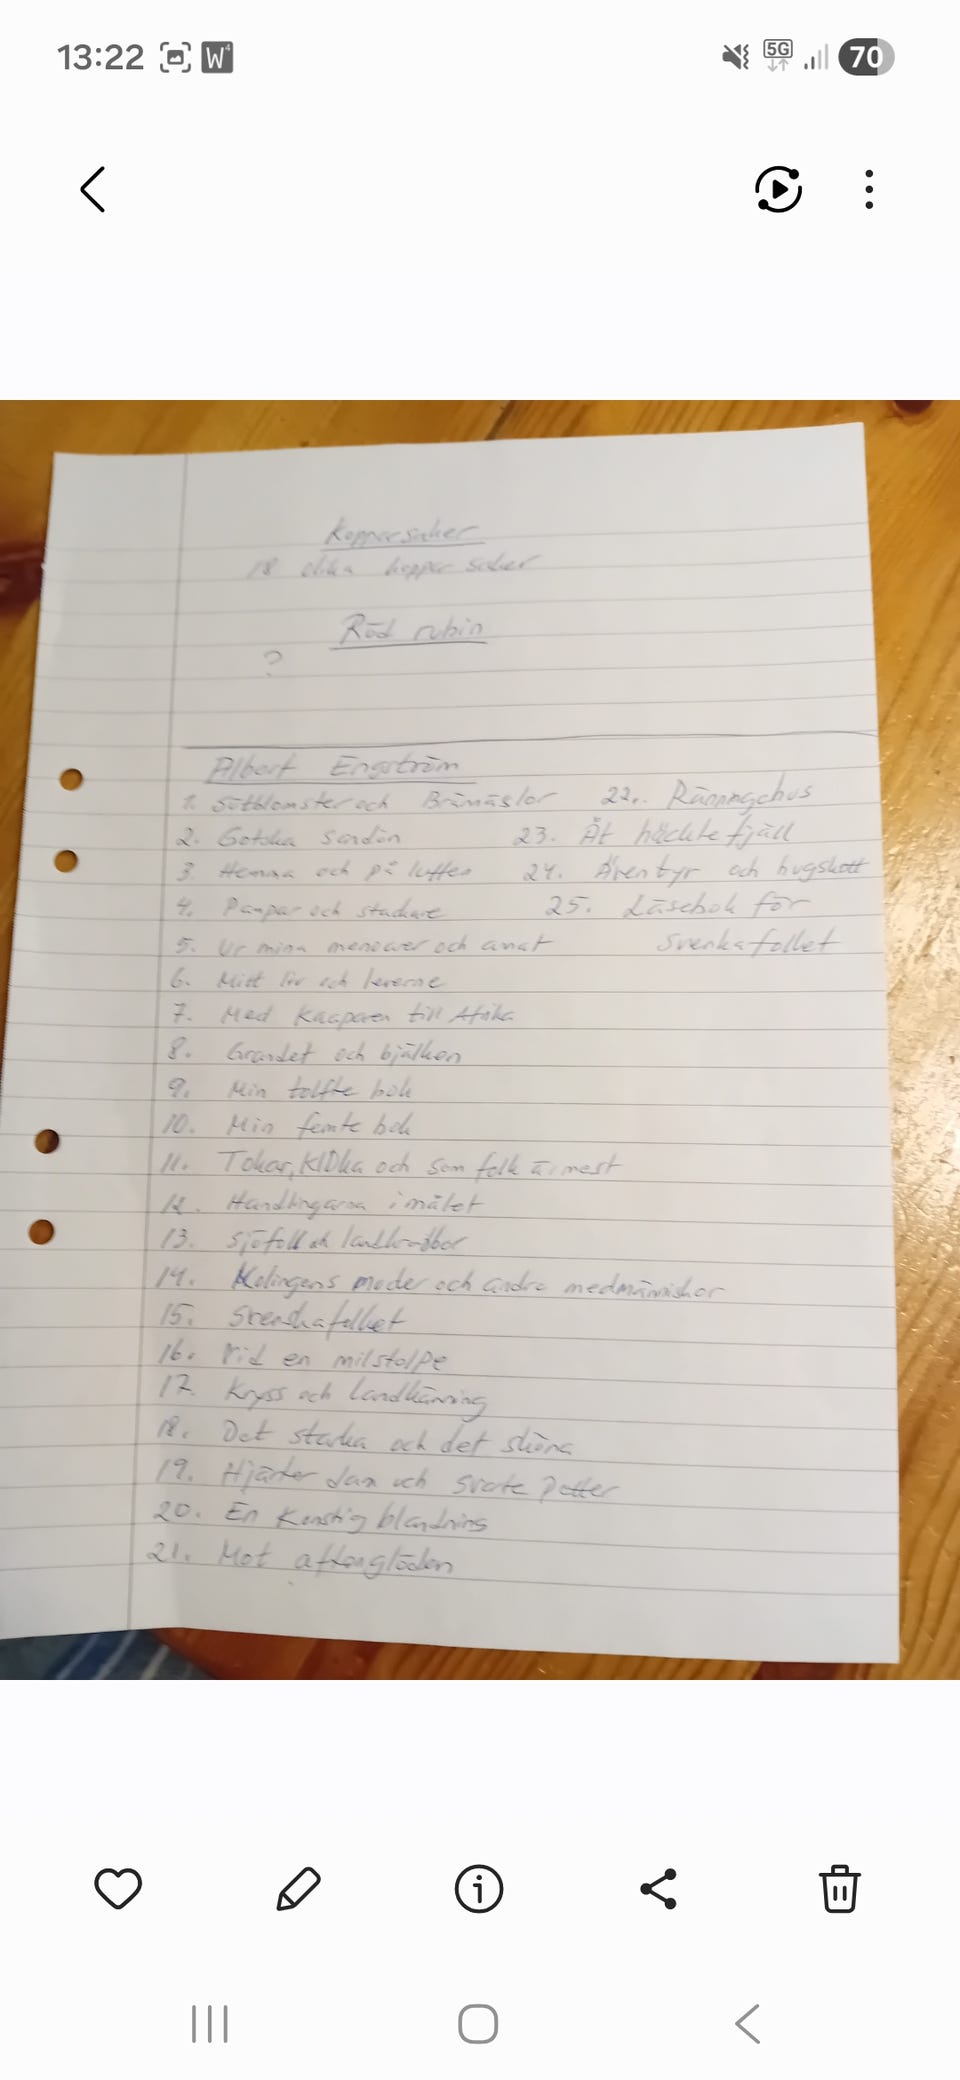 13:22
5G
70
Kopparsaker
18 olika koppar saker
Röd rubin
?
Albert Engström
1. Sötblomster och Brännäslor
2. Gotska Sandön
3. Hemma och på luffen
4. Pampar och stackare
5. Ur mina memoarer och anat
6. Mitt liv och leverne
7. Med Kaaparen till Afrika
8. Grandet och bjälken
9. Min tolfte bok
10. Min femte bok
11. Tokar, Kloka och som folk är mest
12. Handlingarna i målet
13. Sjöfolk och landkrabbor
14. Kolingens moder och andra medmänniskor
15. Svenskafolket
16. Vid en milstolpe
17. Kryss och landkänning
18. Det starka och det sköna
19. Hjärter dam och svarte petter
20. En Konstig blandning
21. Mot aftonglöden
22. Ränningehus
23. Åt häcklefjäll
24. Äventyr och hugskott
25. Läsebok för
Svenkafolket